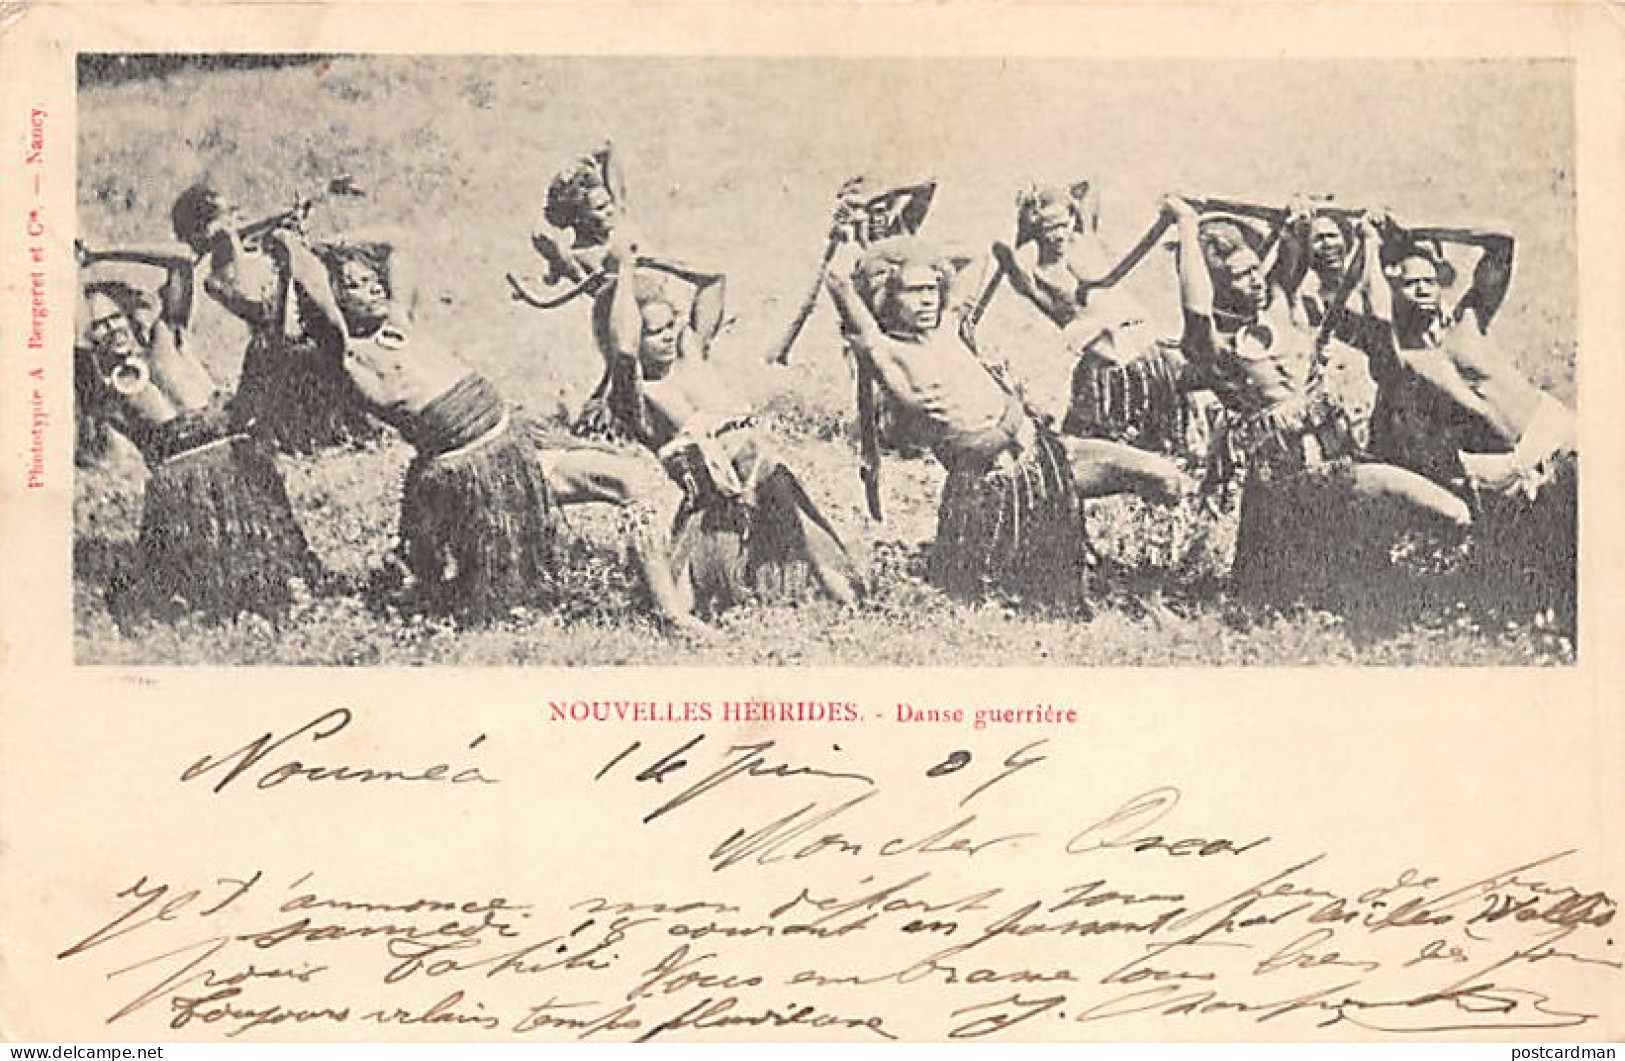 Phototypie A Bergeret et Cie. — Nancy.
NOUVELLES HÉBRIDES. - Danse guerrière
Nouméa 14 Juin 04
Mon cher Oscar
Je t'annonce mon départ sous peu de jours
samedi 18 courant en passant par les îles Wallis
pour Tahiti Vous embrasse tous bien
Toujours vilain temps pluvieux J.
delcampe.net
postcardman